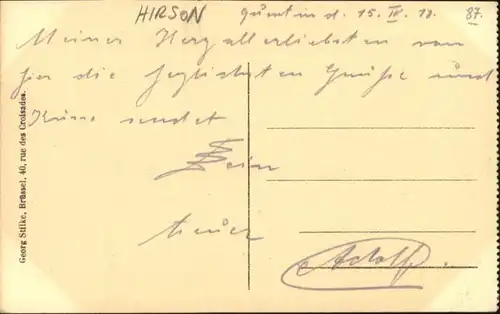 HIRSON
d. 15. IV. 18.
87.
Meiner Herzallerliebsten von
hier die herzlichsten Grüße und
Küsse sendet
Dein
treuer
Adolf.
Georg Stilke, Brüssel, 40, rue des Croisades.